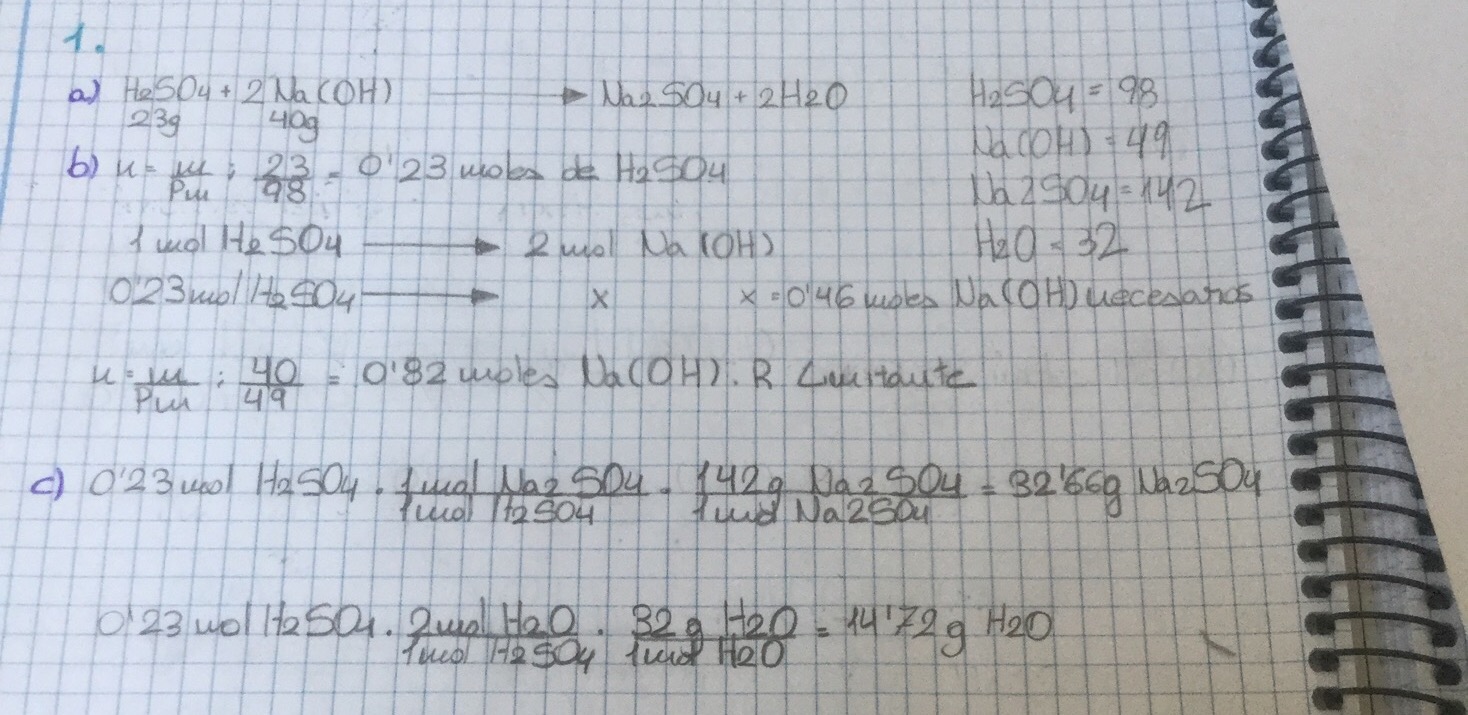 1.
a) H2SO4 + 2 Na(OH) → Na2SO4 + 2H2O H2SO4 = 98
23g 40g Na(OH) = 49
b) n = m/Pm ; 23/98 = 0'23 moles de H2SO4 Na2SO4 = 142
1 mol H2SO4 → 2 mol Na(OH) H2O = 32
0'23 mol H2SO4 → x x = 0'46 moles Na(OH) necesarios
n = m/Pm ; 40/49 = 0'82 moles Na(OH). R Limitante
c) 0'23 mol H2SO4 . 1 mol Na2SO4/1 mol H2SO4 . 142g Na2SO4/1 mol Na2SO4 = 32'66g Na2SO4
0'23 mol H2SO4 . 2 mol H2O/1 mol H2SO4 . 32 g H2O/1 mol H2O = 14'72 g H2O